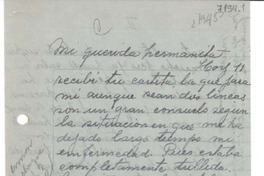 7194.1
C
1945
Mi querida hermanita: Hoy 11
recibi tu cartita la que para
mi aunque sean dos lineas
son un gran consuelo segun
la situacion en que me ha
dejado largo tiempo mi
enfermedad. Pues estaba
completamente tullida